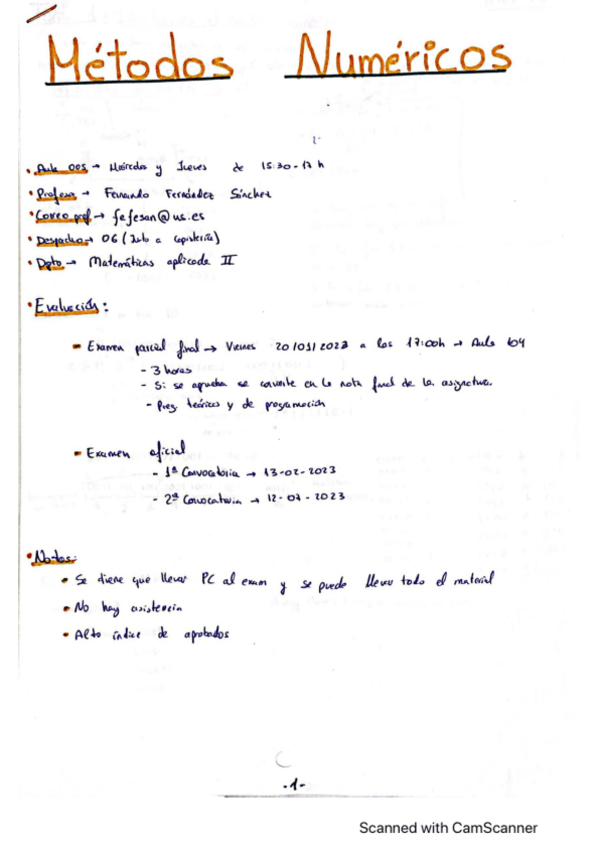 Métodos Numéricos
• Aula 005 → Miércoles y Jueves de 15:30-17 h
• Profesor → Fernando Fernández Sánchez
• Correo prof → fefesan@us.es
• Despacho → 06 (Junto a copistería)
• Dpto → Matemáticas aplicada II
• Evaluación:
- Examen parcial final → Viernes 20/01/2023 a las 17:00h → Aula 104
- 3 horas
- Si se aprueba se convierte en la nota final de la asignatura.
- Preg. teóricas y de programación
- Examen oficial
- 1ª Convocatoria → 13-02-2023
- 2ª Convocatoria → 12-07-2023
• Notas:
• Se tiene que llevar PC al exam y se puede llevar todo el material
• No hay asistencia
• Alto índice de aprobados
-1-
Scanned with CamScanner